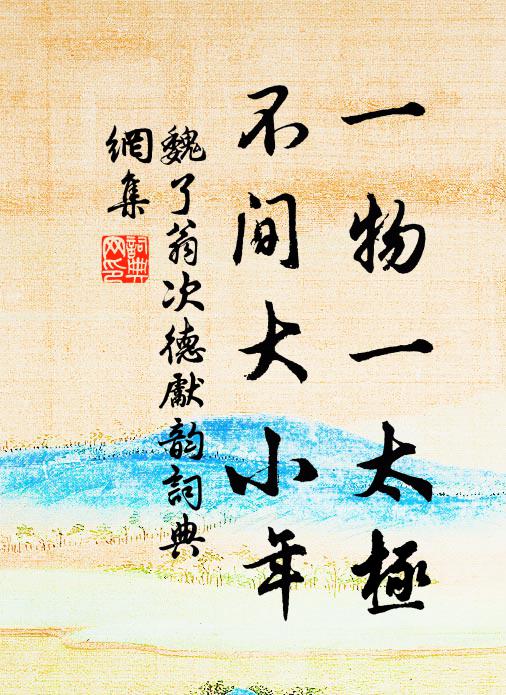 一物一太極
不間大小年
魏了翁次德獻韵詞典
網集
詞典网印